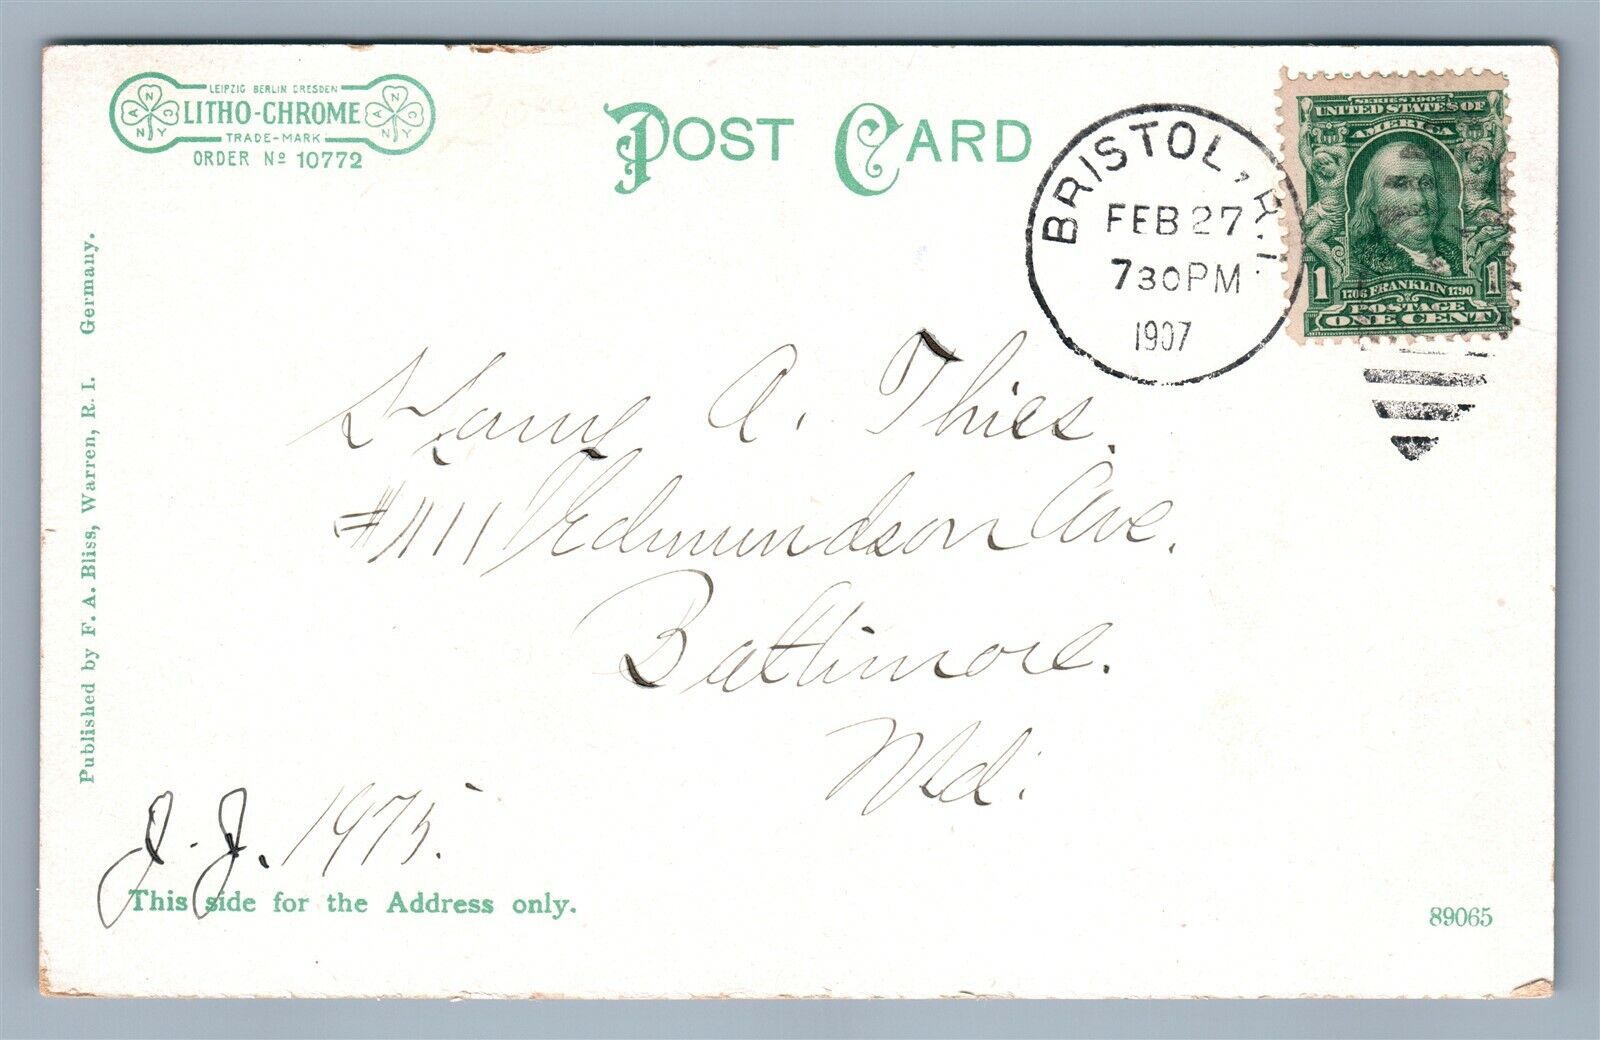 LEIPZIG BERLIN DRESDEN
LITHO-CHROME
TRADE-MARK
ORDER Nº 10772
POST CARD
BRISTOL, R.I.
FEB 27
730PM
1907
SERIES 1902
UNITED STATES OF
AMERICA
1 1
1706 FRANKLIN 1790
POSTAGE
ONE CENT
Published by F. A. Bliss, Warren, R. I. Germany.
Harry A. Thies.
#1111 Edmundson Ave.
Baltimore.
Md.
J. J. 1975.
This side for the Address only.
89065